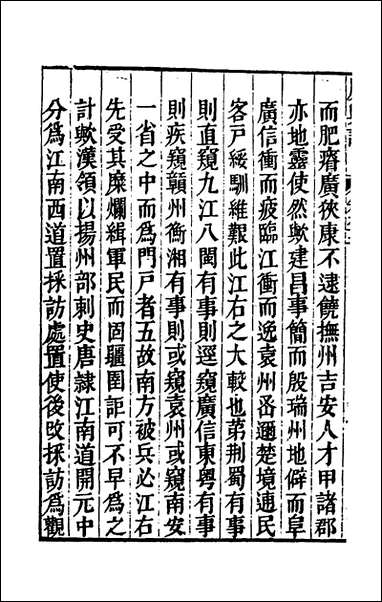 而肥瘠廣狹康不逮饒撫州吉安人才甲諸郡
亦地靈使然歟建昌事簡而殷瑞州地僻而阜
廣信衝而疲臨江衝而逸袁州密邇楚境逋民
客戸綏馴維艱此江右之大較也第荆蜀有事
則直窺九江八閩有事則逕窺廣信東粤有事
則疾窺贛州衡湘有事則或窺袁州或窺南安
一省之中而爲門戸者五故南方被兵必江右
先受其糜爛緝軍民而固疆圉詎可不早爲之
計歟漢領以揚州部刺史唐隷江南道開元中
分爲江南西道置採訪處置使後攺採訪爲觀